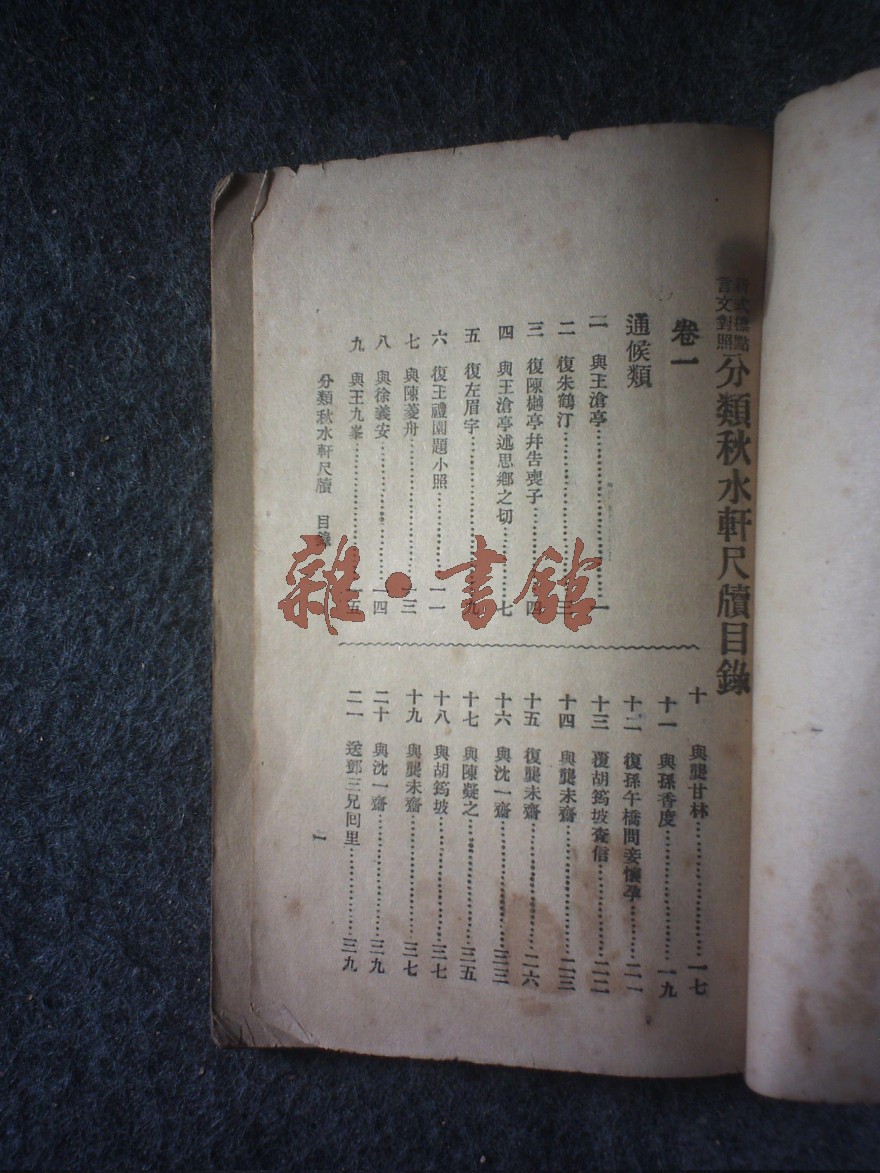 新式標點
言文對照
分類秋水軒尺牘目錄
卷一
通候類
一 與王滄亭……一
二 復朱鶴汀……三
三 復陳樾亭幷吿喪子……四
四 與王滄亭述思鄉之切……七
五 復左眉宇……九
六 復王禮園題小照……一一
七 與陳菱舟……一三
八 與徐義安……一四
九 與王九峯……一五
十 與龔甘林……一七
十一 與孫香度……一九
十二 復孫午橋問妾懷孕……二一
十三 覆胡筠坡壺信……二二
十四 與龔未齋……二三
十五 復龔未齋……二六
十六 與沈一齋……三三
十七 與陳凝之……三五
十八 與胡筠坡……三七
十九 與龔未齋……三七
二十 與沈一齋……三九
二一 送鄧三兄回里……三九
分類秋水軒尺牘 目錄
一
雜·書館